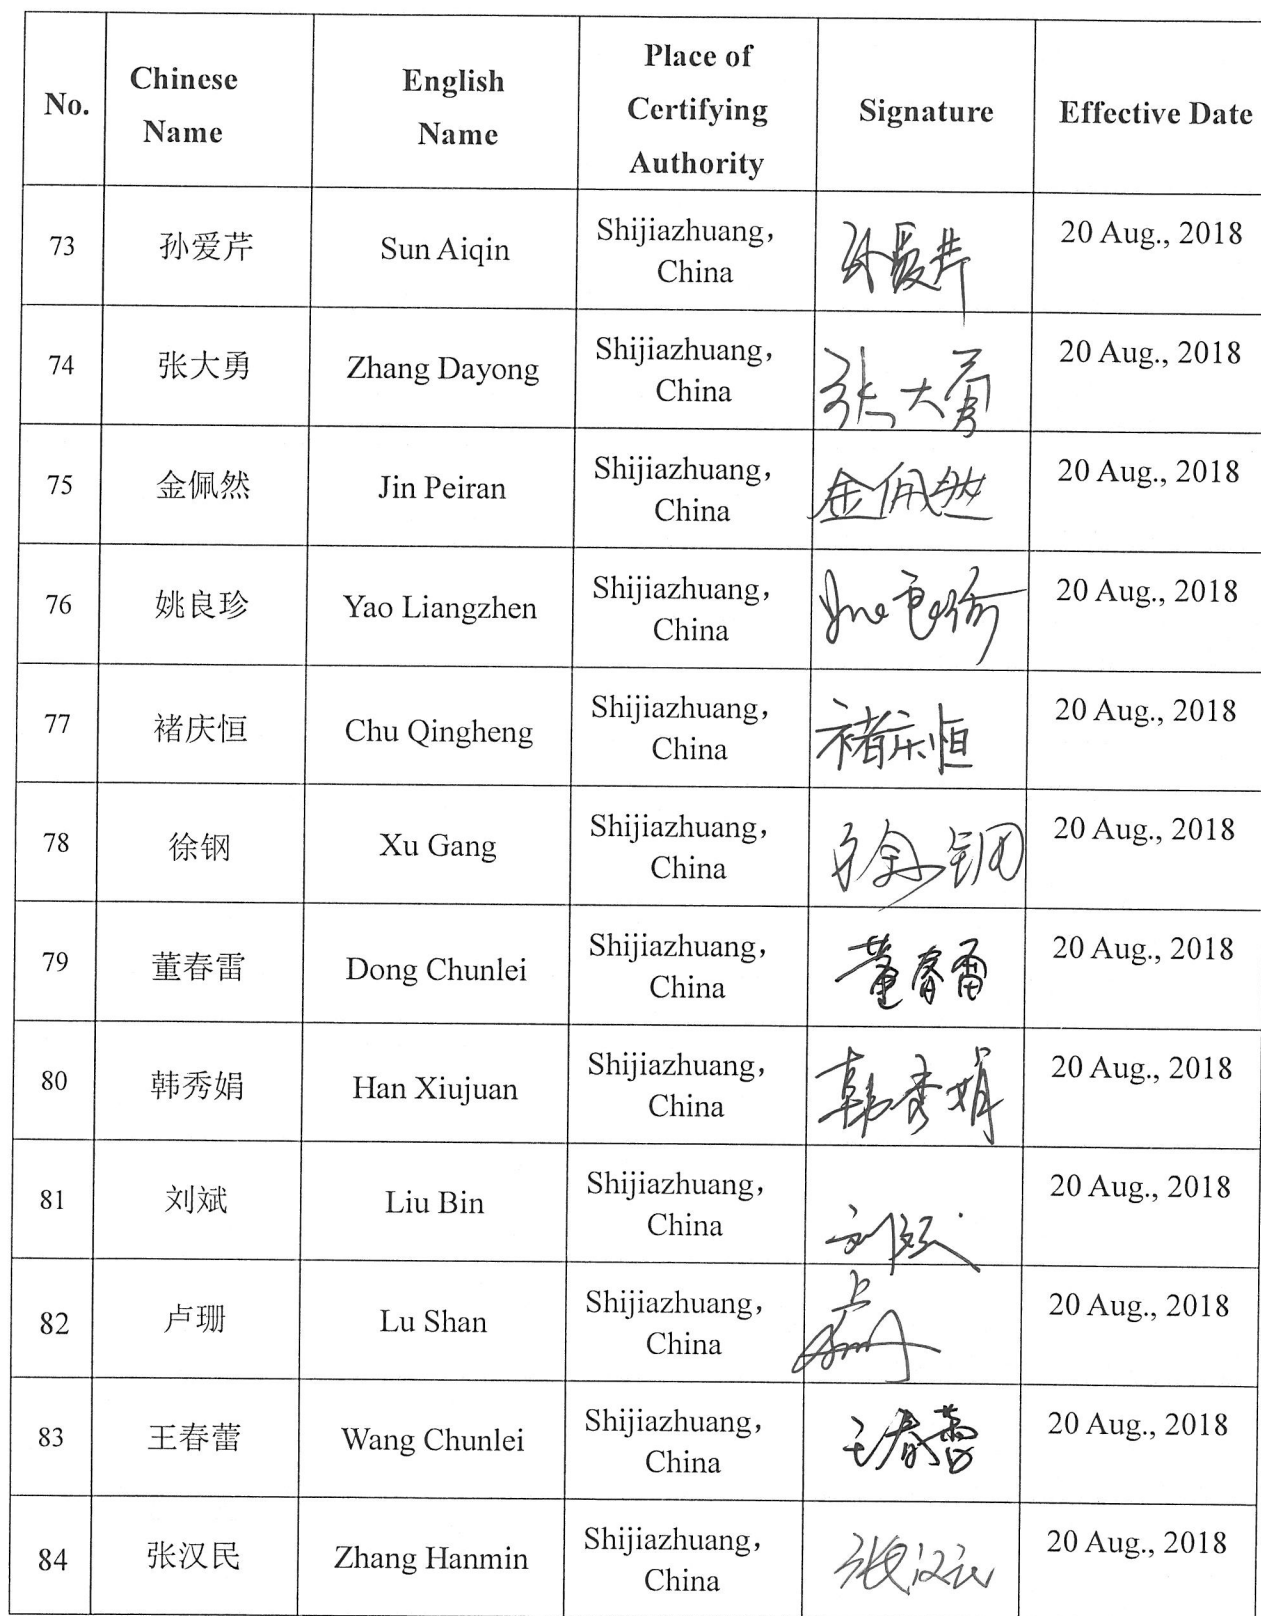 No.
Chinese
Name
English
Name
Place of
Certifying
Authority
Signature
Effective Date
73
孙爱芹
Sun Aiqin
Shijiazhuang，
China
孙爱芹
20 Aug., 2018
74
张大勇
Zhang Dayong
Shijiazhuang，
China
张大勇
20 Aug., 2018
75
金佩然
Jin Peiran
Shijiazhuang，
China
金佩然
20 Aug., 2018
76
姚良珍
Yao Liangzhen
Shijiazhuang，
China
姚良珍
20 Aug., 2018
77
褚庆恒
Chu Qingheng
Shijiazhuang，
China
褚庆恒
20 Aug., 2018
78
徐钢
Xu Gang
Shijiazhuang，
China
徐钢
20 Aug., 2018
79
董春雷
Dong Chunlei
Shijiazhuang，
China
董春雷
20 Aug., 2018
80
韩秀娟
Han Xiujuan
Shijiazhuang，
China
韩秀娟
20 Aug., 2018
81
刘斌
Liu Bin
Shijiazhuang，
China
刘斌
20 Aug., 2018
82
卢珊
Lu Shan
Shijiazhuang，
China
20 Aug., 2018
83
王春蕾
Wang Chunlei
Shijiazhuang，
China
王春蕾
20 Aug., 2018
84
张汉民
Zhang Hanmin
Shijiazhuang，
China
张汉民
20 Aug., 2018